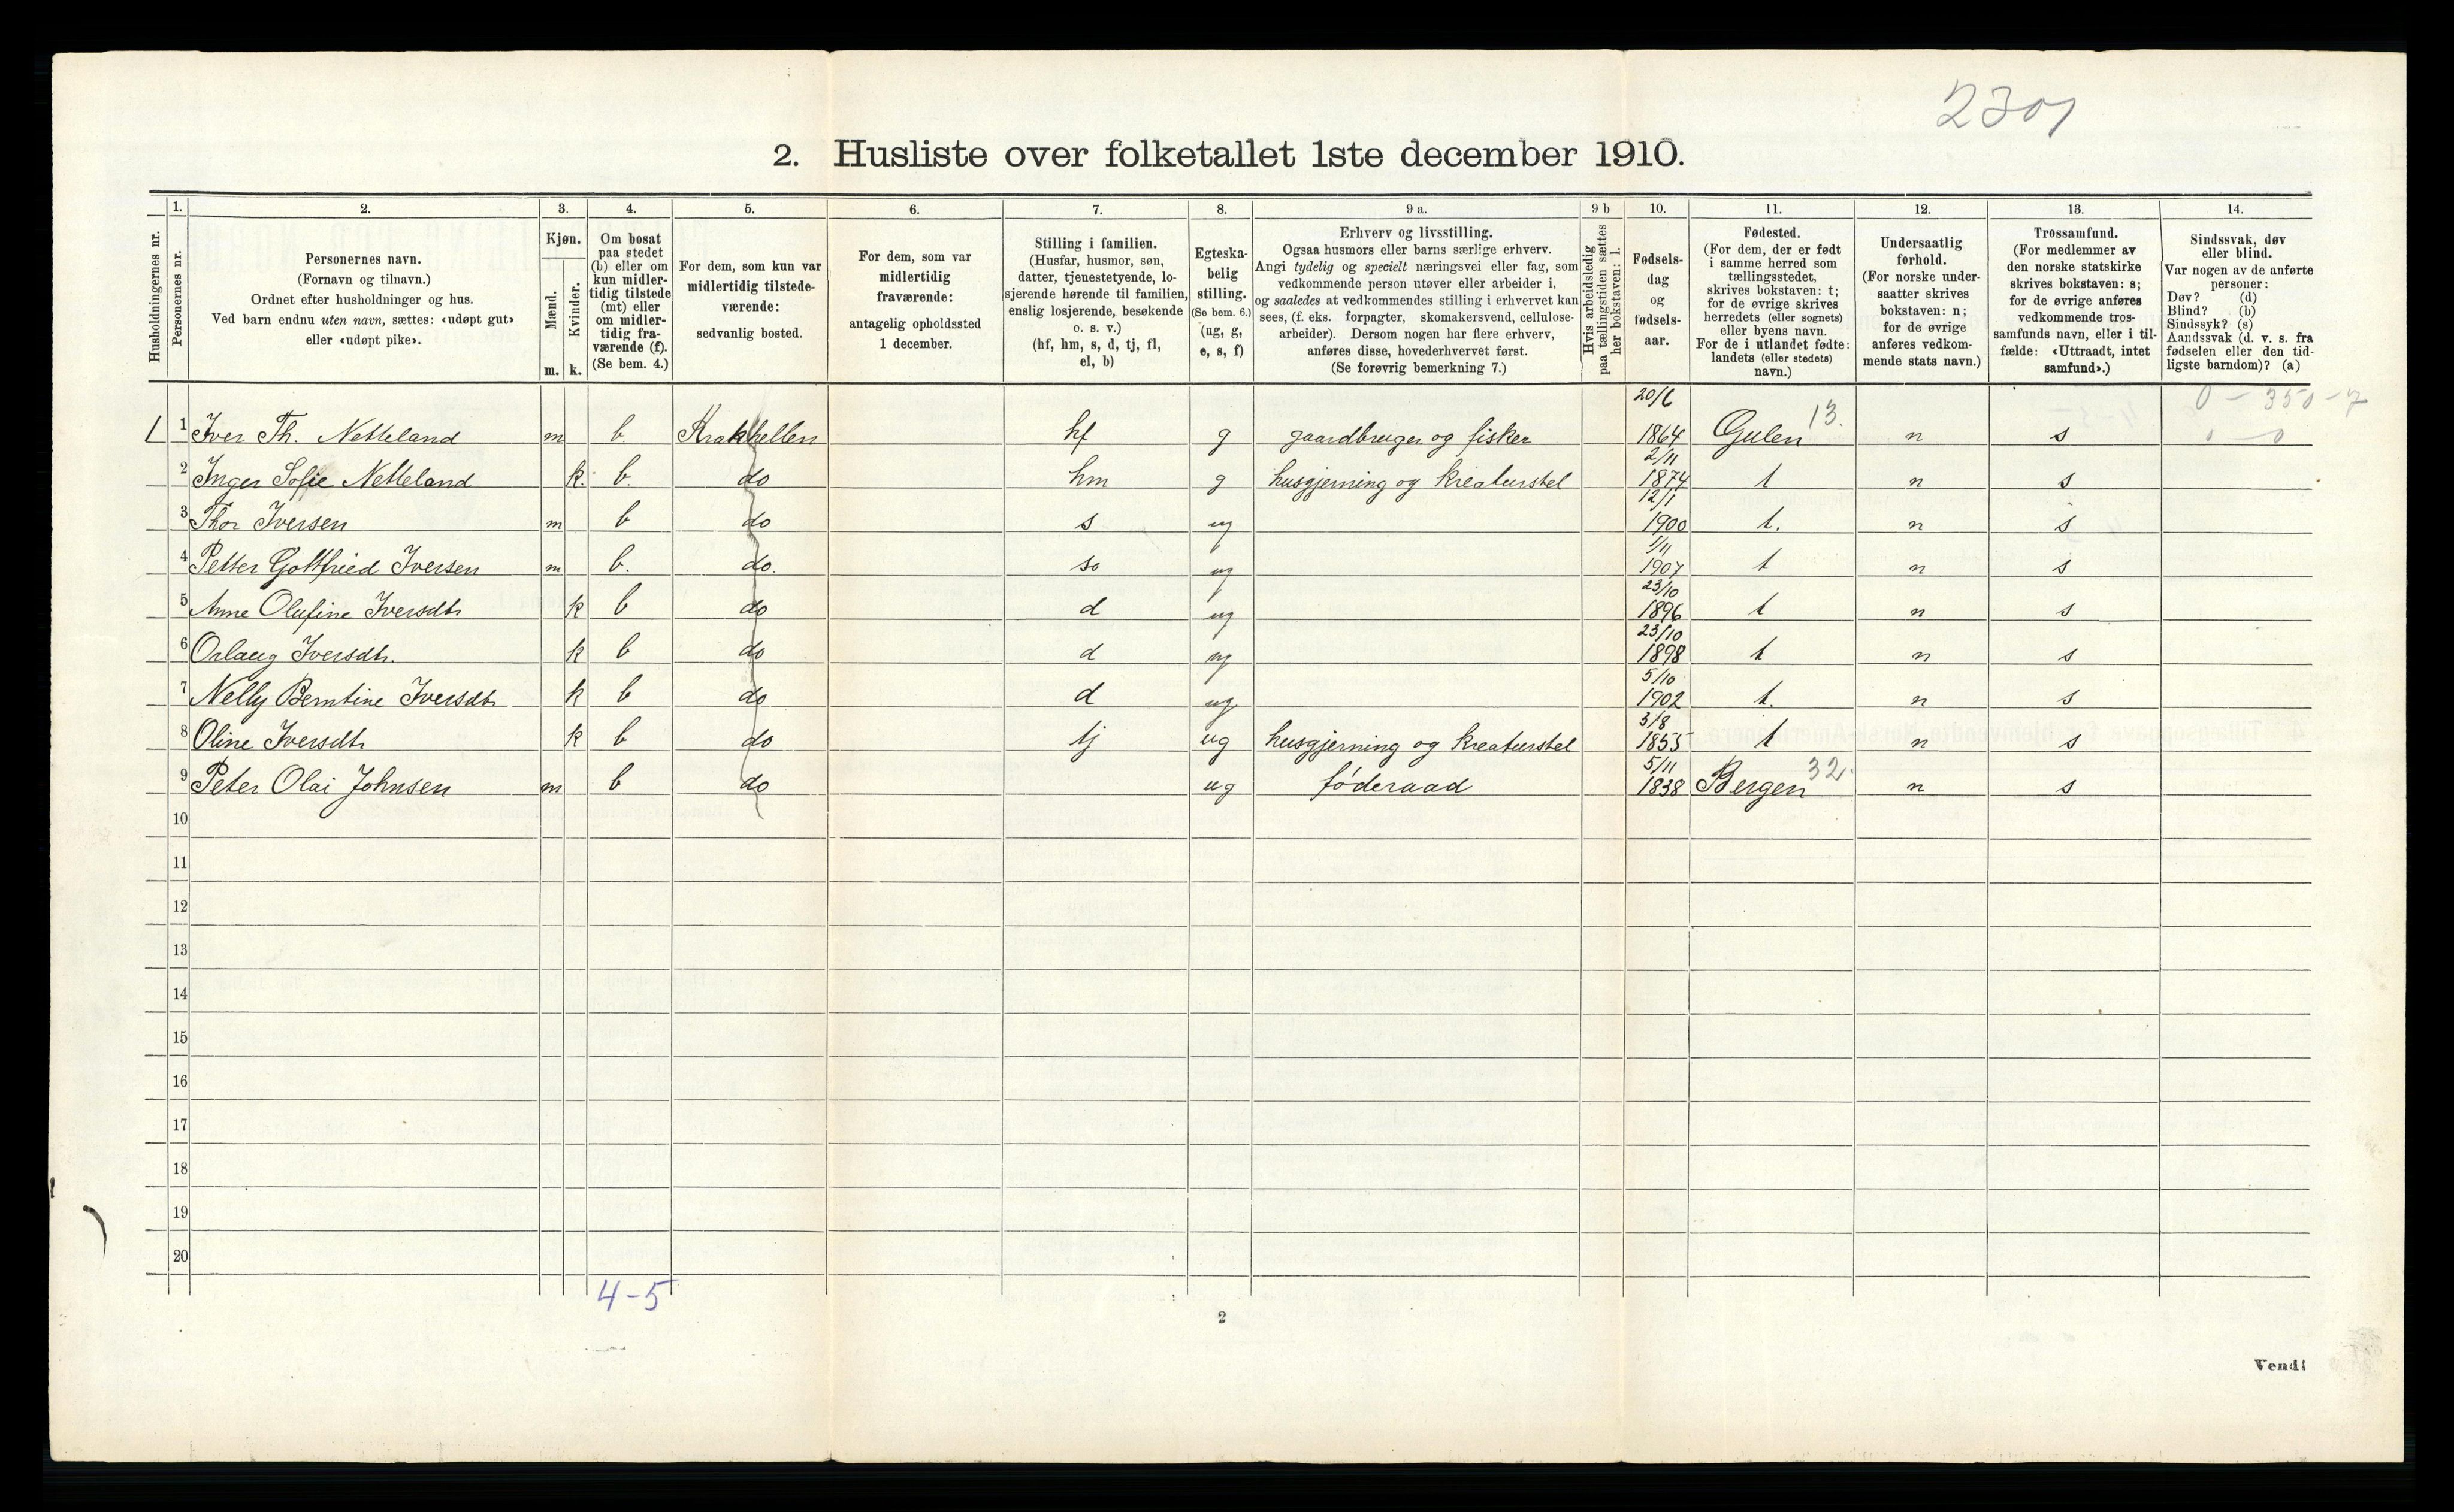 2301
2. Husliste over folketallet 1ste december 1910.
Husholdningernes nr.
1. Personernes nr.
2. Personernes navn.
(Fornavn og tilnavn.)
Ordnet efter husholdninger og hus.
Ved barn endnu uten navn, sættes: «udøpt gut»
eller «udøpt pike».
3. Kjøn.
Mænd. m.
Kvinder. k.
4. Om bosat
paa stedet
(b) eller om
kun midler-
tidig tilstede
(mt) eller
om midler-
tidig fra-
værende (f).
(Se bem. 4.)
5. For dem, som kun var
midlertidig tilstede-
værende:
sedvanlig bosted.
6. For dem, som var
midlertidig
fraværende:
antagelig opholdssted
1 december.
7. Stilling i familien.
(Husfar, husmor, søn,
datter, tjenestetyende, lo-
sjerende hørende til familien,
enslig losjerende, besøkende
o. s. v.)
(hf, hm, s, d, tj, fl,
el, b)
8. Egteska-
belig
stilling.
(Se bem. 6.)
(ug, g,
e, s, f)
9 a. Erhverv og livsstilling.
Ogsaa husmors eller barns særlige erhverv.
Angi tydelig og specielt næringsvei eller fag, som
vedkommende person utøver eller arbeider i,
og saaledes at vedkommendes stilling i erhvervet kan
sees, (f. eks. forpagter, skomakersvend, cellulose-
arbeider). Dersom nogen har flere erhverv,
anføres disse, hovederhvervet først.
(Se forøvrig bemerkning 7.)
9 b Hvis arbeidsledig
paa tællingstiden sættes
her bokstaven: l.
10. Fødsels-
dag
og
fødsels-
aar.
11. Fødested.
(For dem, der er født
i samme herred som
tællingsstedet,
skrives bokstaven: t;
for de øvrige skrives
herredets (eller sognets)
eller byens navn.
For de i utlandet fødte:
landets (eller stedets)
navn.)
12. Undersaatlig
forhold.
(For norske under-
saatter skrives
bokstaven: n;
for de øvrige
anføres vedkom-
mende stats navn.)
13. Trossamfund.
(For medlemmer av
den norske statskirke
skrives bokstaven: s;
for de øvrige anføres
vedkommende tros-
samfunds navn, eller i til-
fælde: «Uttraadt, intet
samfund».)
14. Sindssvak, døv
eller blind.
Var nogen av de anførte
personer:
Døv? (d)
Blind? (b)
Sindssyk? (s)
Aandssvak (d. v. s. fra
fødselen eller den tid-
ligste barndom)? (a)
0 - 350 - 7
0 - 0
1 1 Iver Th. Netteland m b. Krakhellen hf g gaardbruger og fisker 20/6 1864 Gulen 13. n s
2 Inger Sofie Netteland k. b. do hm g husgjerning og kreaturstel 2/11 1874 t n s
3 Thor Iversen m b do s ug 12/1 1900 t. n s
4 Petter Gottfried Iversen m b. do. so ug 1/11 1907 t n s
5 Anne Olufine Iversdtr k b do d ug 23/10 1896 t n s
6 Orlaug Iversdtr. k b do d ug 23/10 1898 t n s
7 Nelly Berntine Iversdtr k b do d ug 5/10 1902 t. n s
8 Oline Iversdtr k b do tj ug husgjerning og kreaturstel 3/8 1855 t n s
9 Peter Olai Johnsen m b do ug føderaad 5/11 1838 Bergen 32. n s
10
11
12
13
14
15
16
17
18
19
20
4-5
2
Vend!